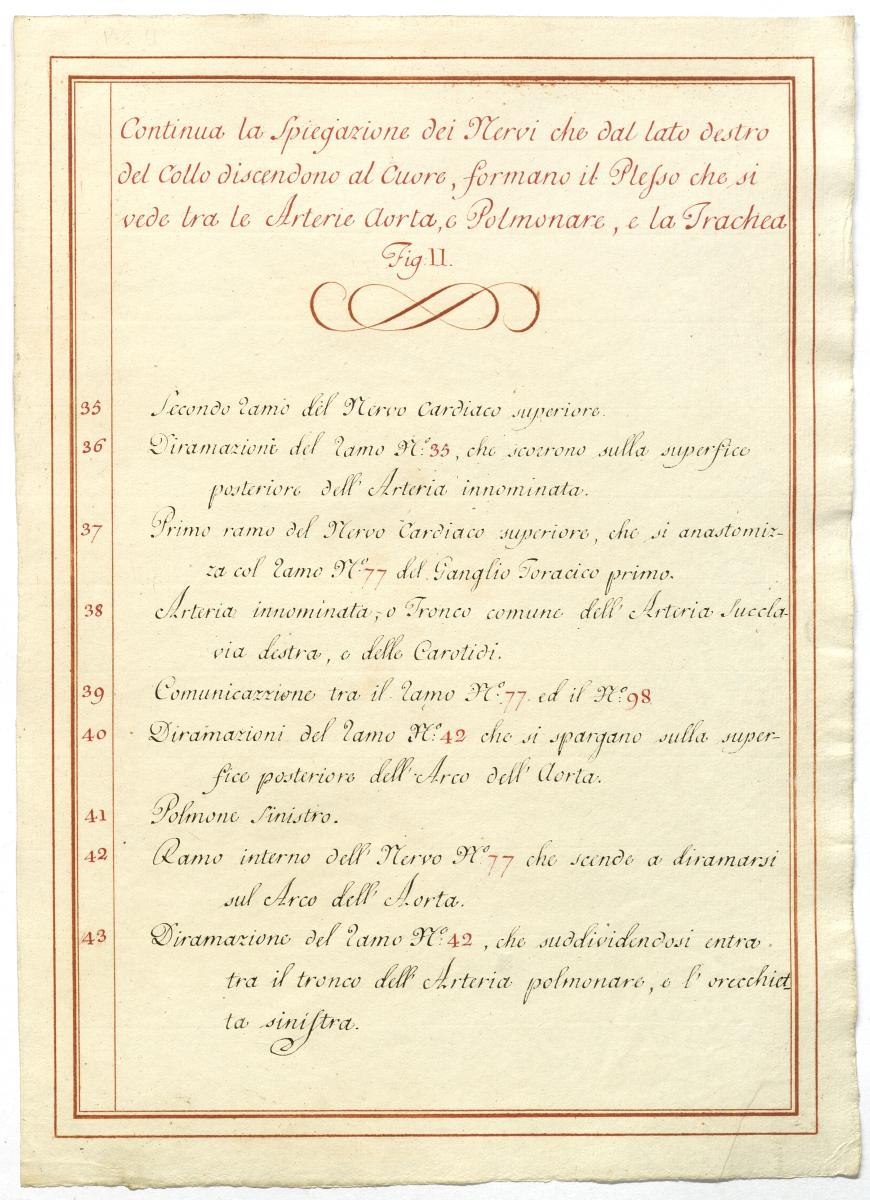 Continua la Spiegazione dei Nervi che dal lato destro
del Collo discendono al Cuore, formano il Plesso che si
vede tra le Arterie Aorta, e Polmonare, e la Trachea
Fig. II.
35 Secondo ramo del Nervo Cardiaco superiore.
36 Diramazioni del ramo N.º 35, che scorrono sulla superfice
posteriore dell' Arteria innominata.
37 Primo ramo del Nervo Cardiaco superiore, che si anastomiz-
za col ramo N.º 77 del Ganglio Toracico primo.
38 Arteria innominata, o Tronco comune dell' Arteria Succla-
via destra, e delle Carotidi.
39 Comunicazzione tra il ramo N.º 77 ed il N.º 98
40 Diramazioni del ramo N.º 42 che si spargano sulla super-
fice posteriore dell' Arco dell' Aorta.
41 Polmone sinistro.
42 Ramo interno dell' Nervo N.º 77 che scende a diramarsi
sul Arco dell' Aorta.
43 Diramazione del ramo N.º 42, che suddividendosi entra
tra il tronco dell' Arteria polmonare, e l' orecchiet-
ta sinistra.